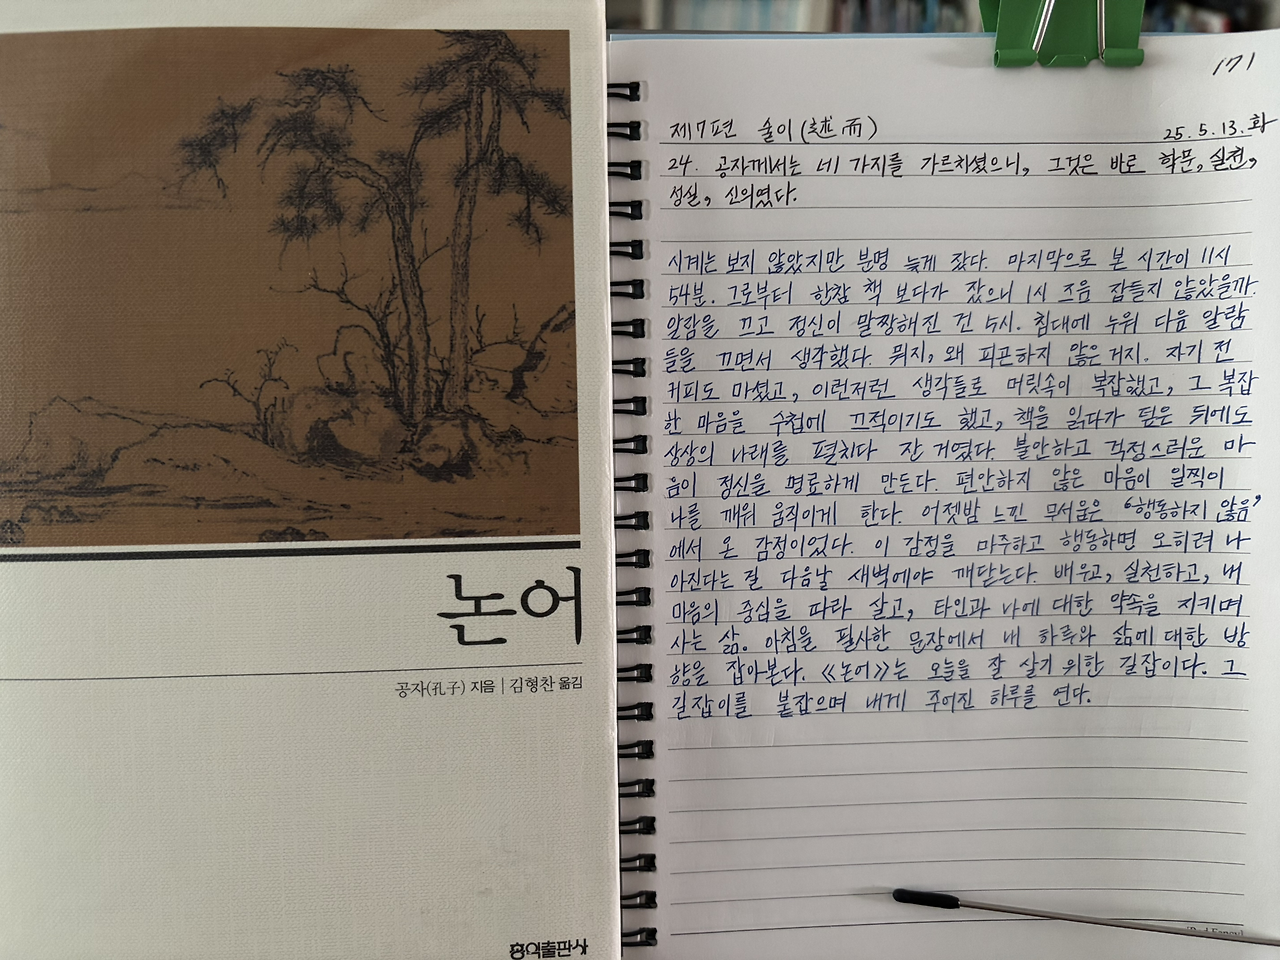 논어
공자(孔子) 지음 | 김형찬 옮김
홍익출판사
171
제7편 술이(述而) 25.5.13.화
24. 공자께서는 네 가지를 가르치셨으니, 그것은 바로 학문, 실천,
성실, 신의였다.
시계는 보지 않았지만 분명 늦게 잤다. 마지막으로 본 시간이 11시
54분. 그로부터 한참 책 보다가 잤으니 1시 즈음 잠들지 않았을까.
알람을 끄고 정신이 말짱해진 건 4시. 침대에 누워 다음 알람
들을 끄면서 생각했다. 뭐지, 왜 피곤하지 않은 거지. 자기 전
커피도 마셨고, 이런저런 생각들로 머릿속이 복잡했고, 그 복잡
한 마음을 수첩에 끄적이기도 했고, 책을 읽다가 덮은 뒤에도
상상의 나래를 펼치다 잔 거였다. 불안하고 걱정스러운 마
음이 정신을 명료하게 만든다. 편안하지 않은 마음이 일찍이
나를 깨워 움직이게 한다. 어젯밤 느낀 무서움은 '행동하지 않음'
에서 온 감정이었다. 이 감정을 마주하고 행동하면 오히려 나
아진다는 걸 다음날 새벽에야 깨닫는다. 배우고, 실천하고, 내
마음의 중심을 따라 살고, 타인과 나에 대한 약속을 지키며
사는 삶. 아침을 필사한 문장에서 내 하루와 삶에 대한 방
향을 잡아본다. 《논어》는 오늘을 잘 살기 위한 길잡이다. 그
길잡이를 붙잡으며 내게 주어진 하루를 연다.